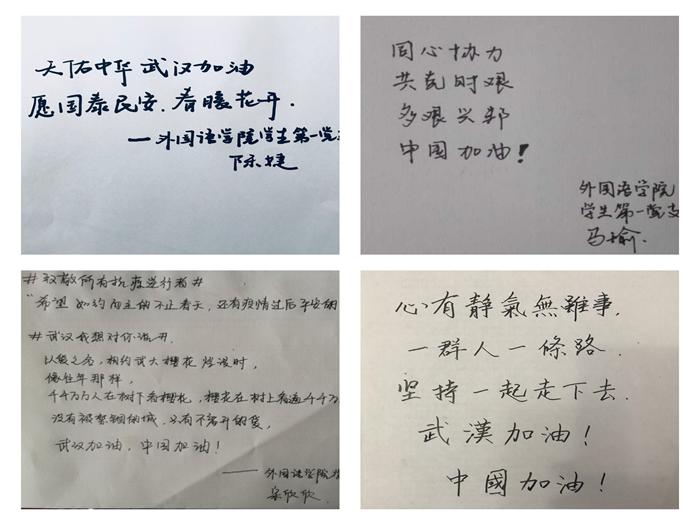 天佑中华 武汉加油
愿国泰民安、春暖花开.
—外国语学院学生第一党支
陈捷
同心协力
共克时艰
多艰兴邦
中国加油!
外国语学院
学生第一党支
马瑜.
#致敬所有抗疫逆行者#
“希望 如约而至的不止春天,还有疫情过后平安
#武汉我想对你说
以爱之名,相约武大樱花 时,
像往年那样,
千千万万人在树下看樱花,樱花在树上看遍千千万
没有被禁锢的城,只有不离开的爱,
武汉加油,中国加油!
—— 外国语学院
梁欣欣
心有靜氣無難事,
一群人一條路.
坚持一起走下去.
武漢加油!
中國加油!